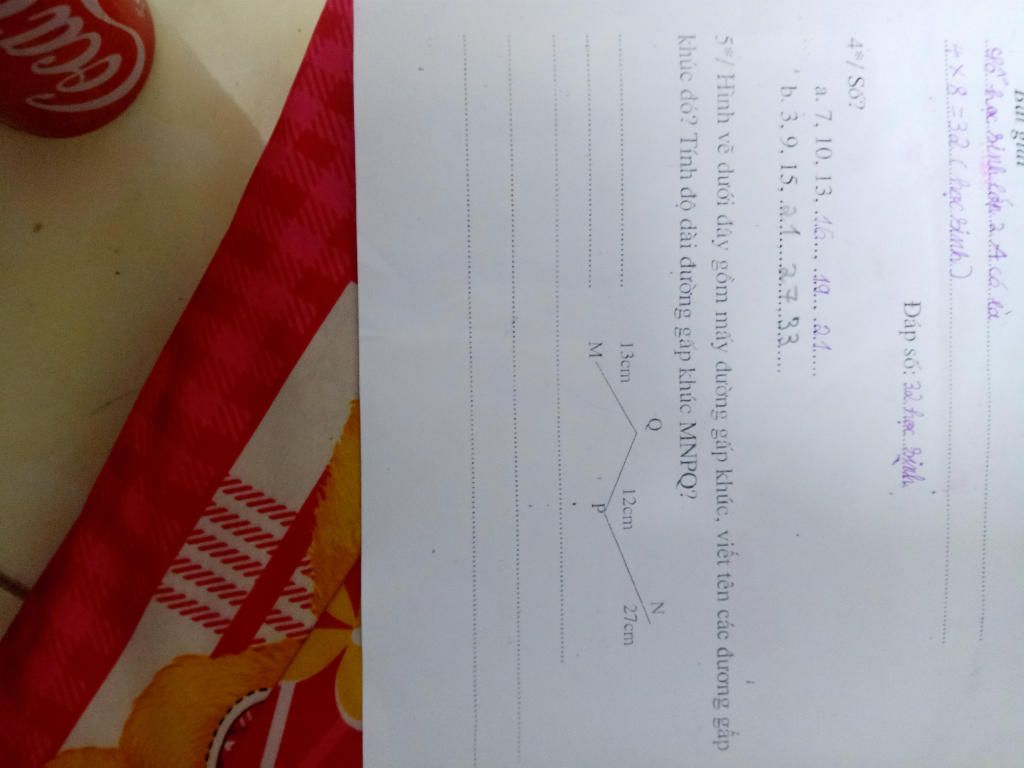 Bài giải
Số học sinh lớp 2A có là
4 × 8 = 32 (học sinh)
Đáp số: 32 học sinh
4*/ Số?
a. 7, 10, 13, 16, 19, 21
b. 3, 9, 15, 21, 27, 33
5*/ Hình vẽ dưới đây gồm mấy đường gấp khúc, viết tên các đương gấp
khúc đó? Tính độ dài đường gấp khúc MNPQ?
Q N
13cm 12cm 27cm
M P
Coca